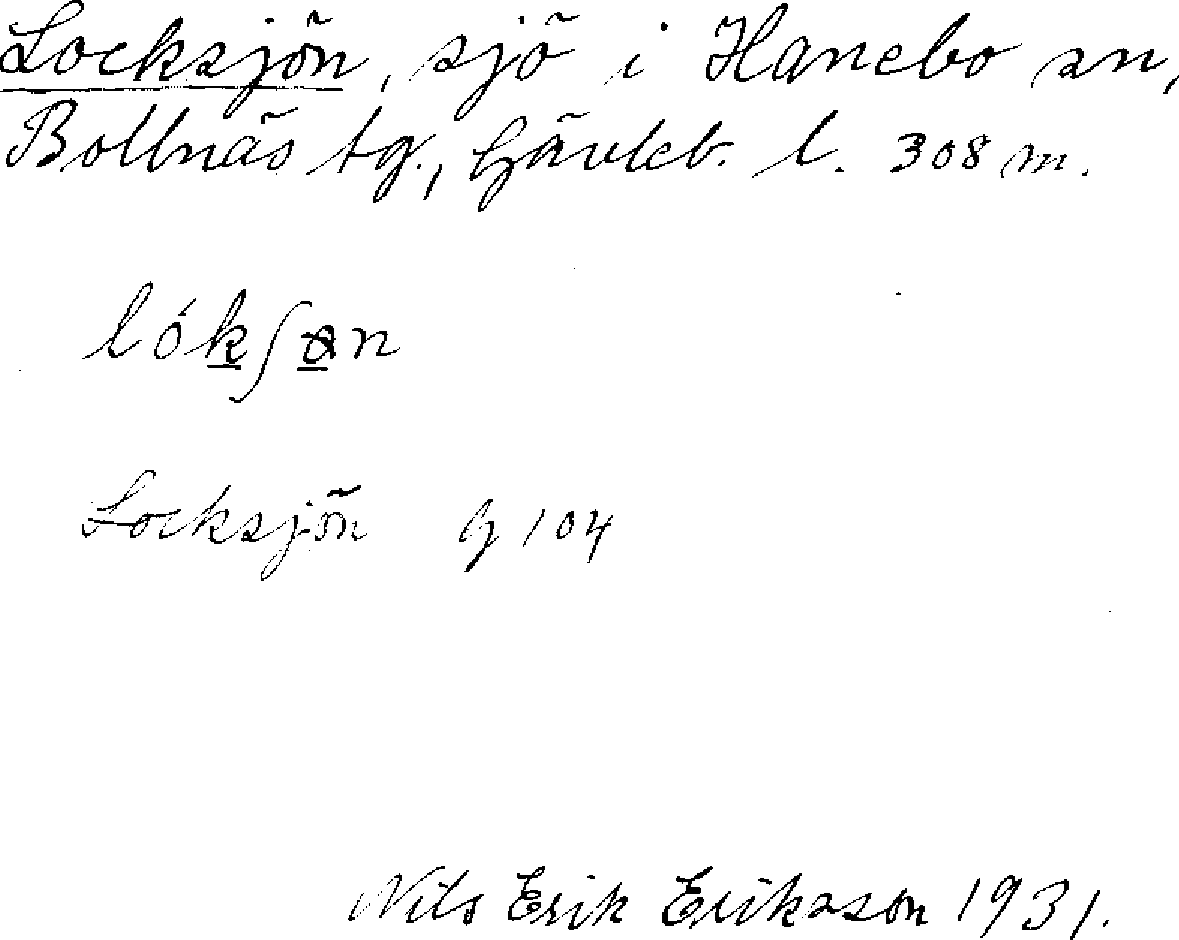 Locksjön, sjö i Hanebo sn,
Bollnäs tg., Gävleb. l. 308 m.
lókʃɵn
Locksjön G 104
Nils Erik Eriksson 1931.